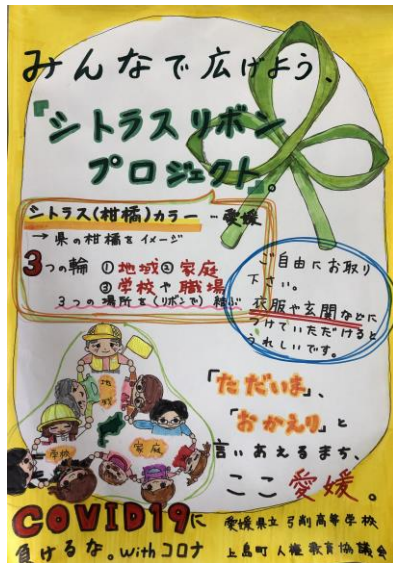 みんなで広げよう、
『シトラスリボン
プロジェクト』。
シトラス(柑橘)カラー…愛媛
→ 県の柑橘をイメージ
3つの輪 ①地域②家庭
③学校や職場
3つの場所を(リボンで)結ぶ
ご自由にお取り
下さい。
衣服や玄関などに
つけていただけると
うれしいです。
地域
学校
家庭
「ただいま」、
「おかえり」と
言いあえるまち、
ここ愛媛。
COVID19に
負けるな。withコロナ
愛媛県立 弓削高等学校
上島町 人権教育協議会